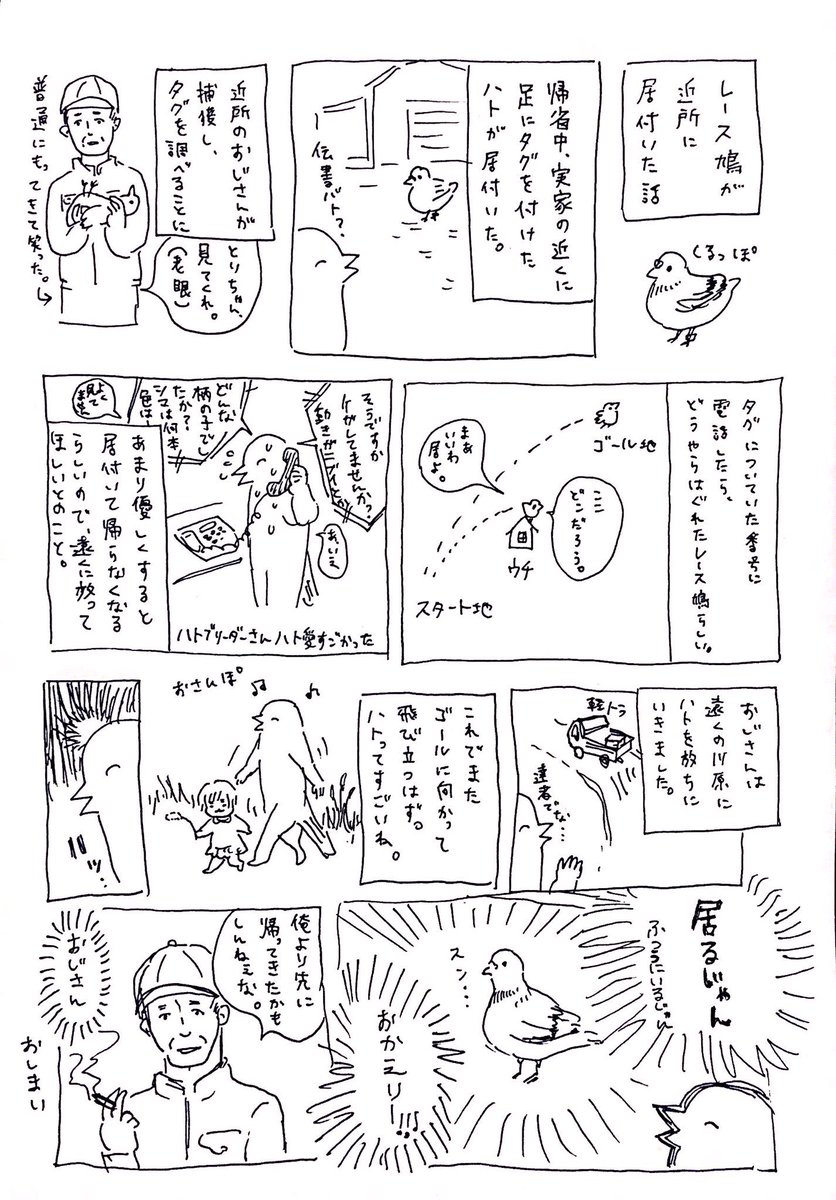 レース鳩が
近所に
居付いた話
くるっぽ
帰省中、実家の近くに
足にタグを付けた
ハトが居付いた。
伝書バト?
近所のおじさんが
捕獲し、
タグを調べることに
とりちゃん、
見てくれ。
(老眼)
普通にもってきて笑った。
タグについていた番号に
電話したら、
どうやらはぐれたレース鳩らしい。
ゴール地
ここ
どこだろう。
まあ
いいわ
居よ。
ウチ
スタート地
そうですか
ケガしてませんか?
動きがニブイとか
どんな
柄の子でし
たか?
シマは何本
色は…
あ、いえ
よく
見て
ません
ハトブリーダーさんハト愛すごかった
あまり優しくすると
居付いて帰らなくなる
らしいので、遠くに放って
ほしいとのこと。
おじさんは
遠くの川原に
ハトを放ちに
いきました。
軽トラ
達者でな…
これでまた
ゴールに向かって
飛び立つはず。
ハトってすごいね。
おさんぽ
ハッ…
居るじゃん
ふつうにいるじゃん
スン…
おかえりー!!!
俺より先に
帰ってきたかも
しんねぇな。
おじさん
おしまい